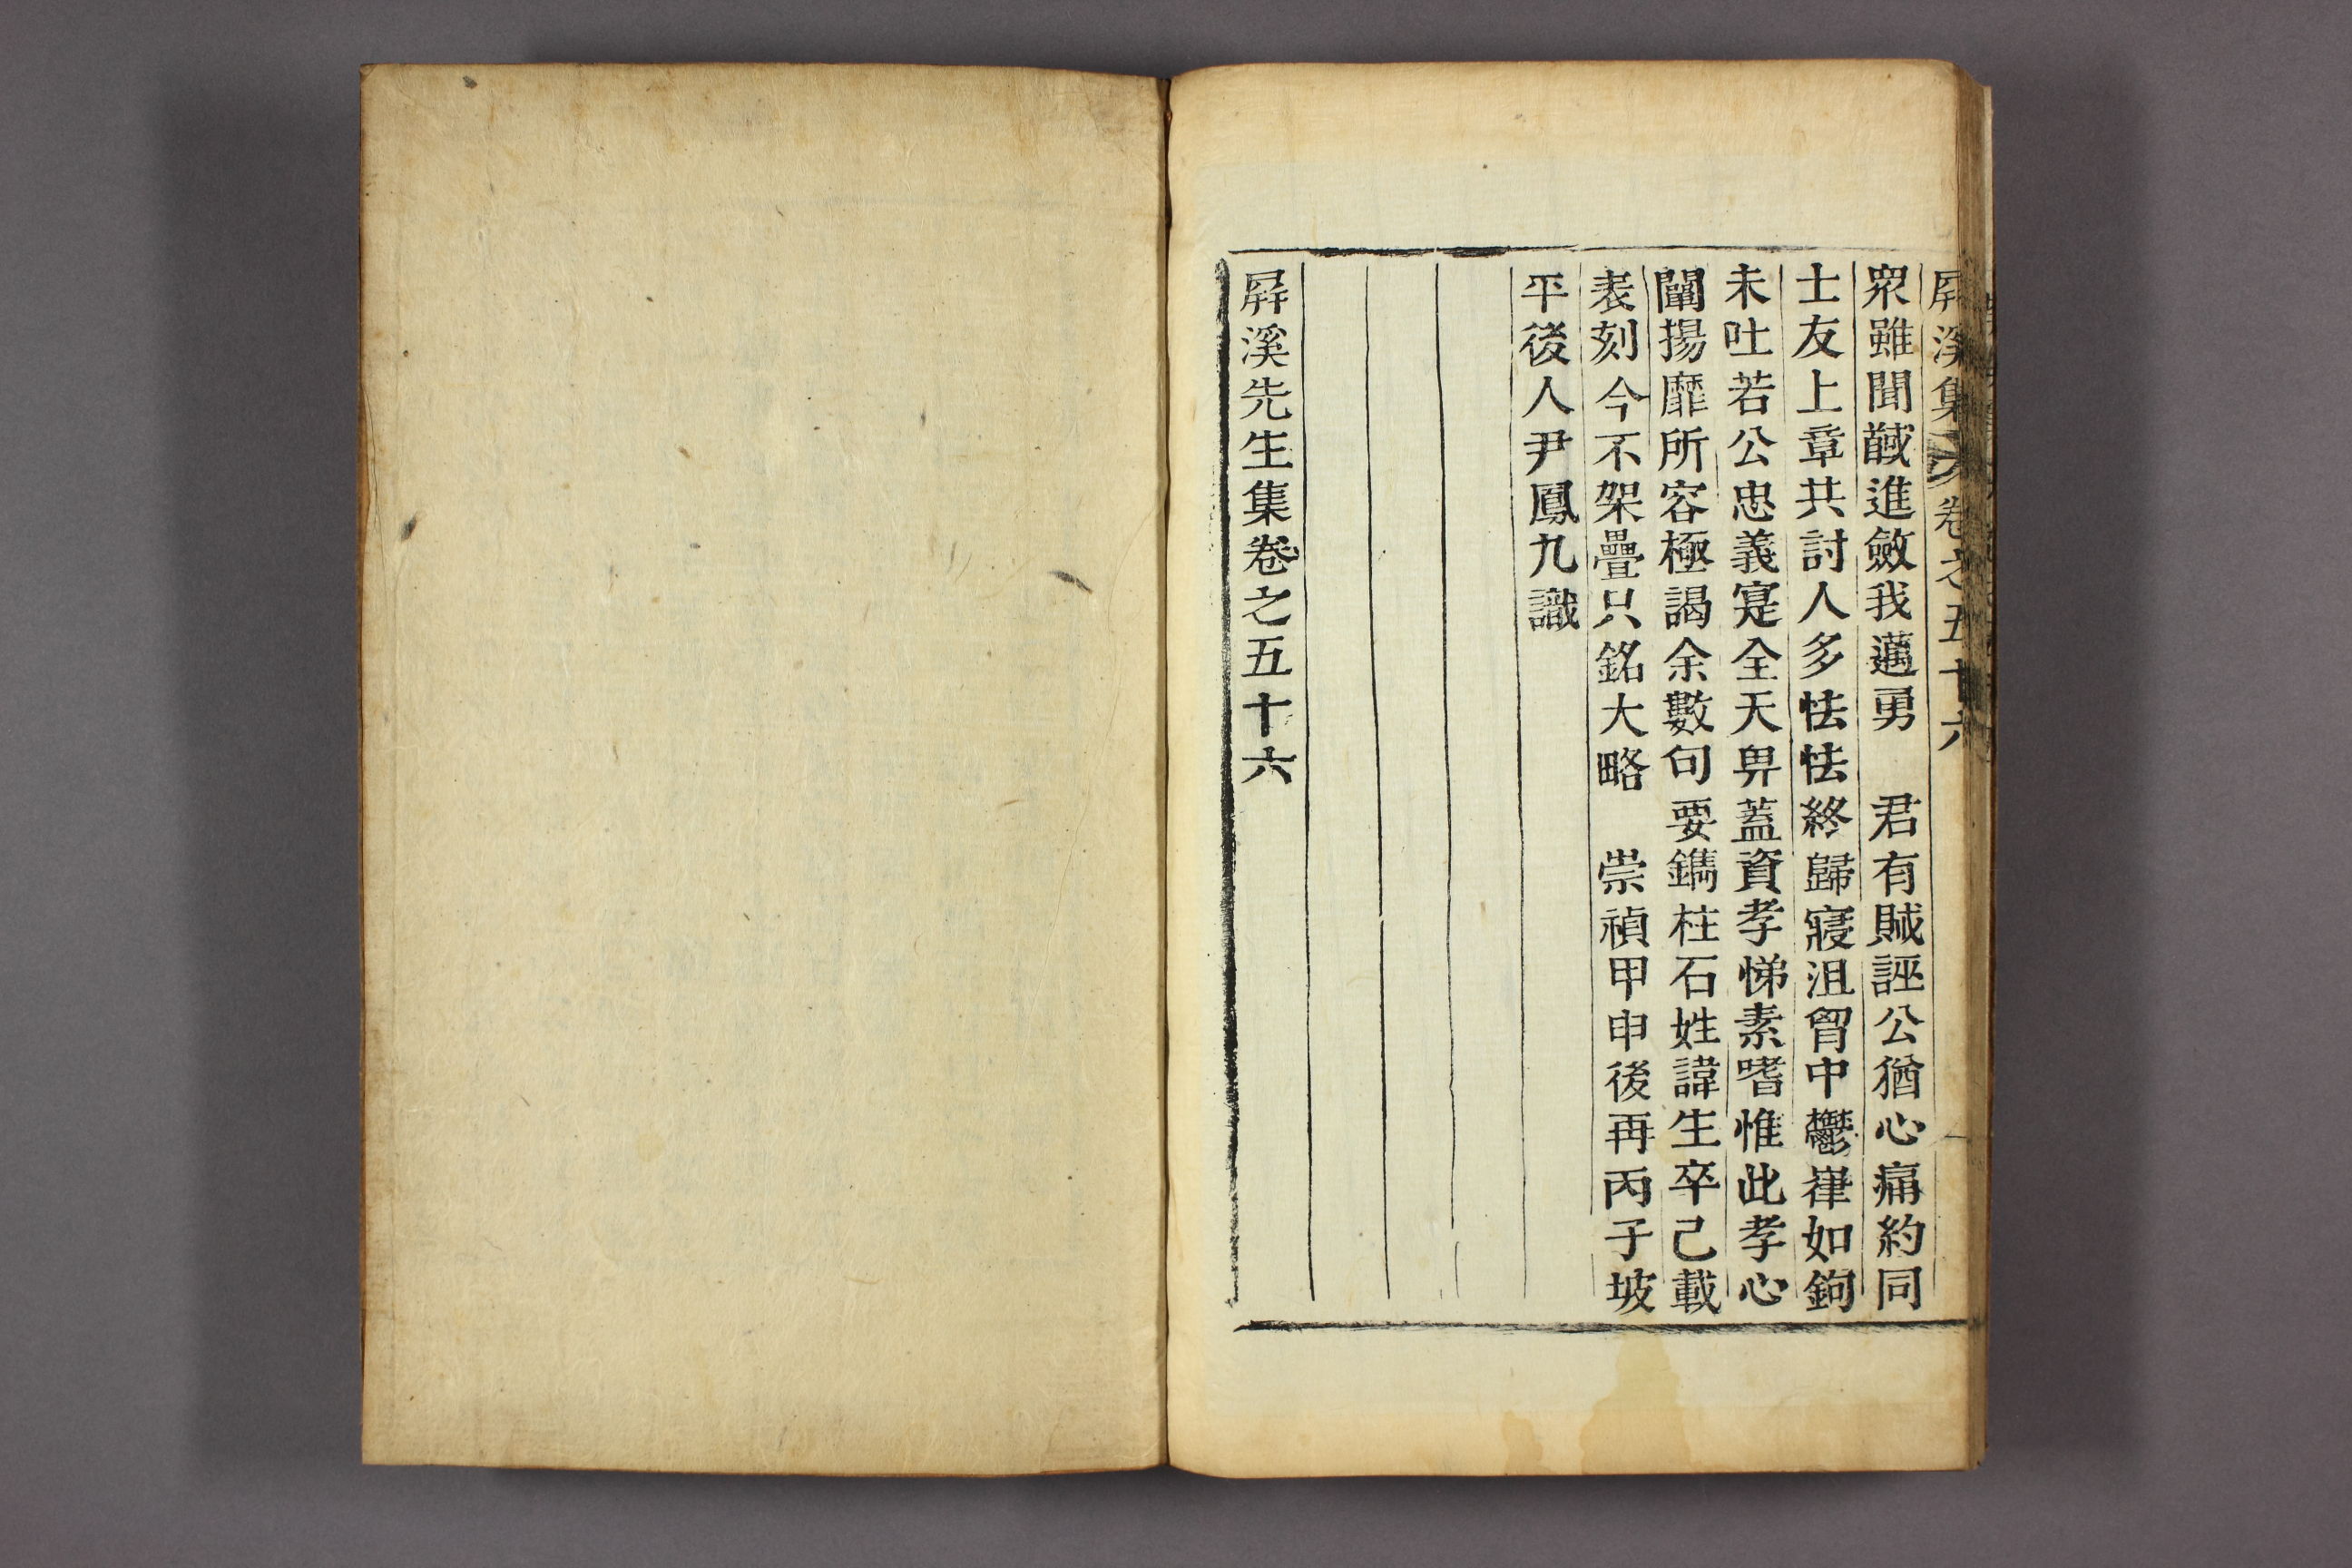 屛溪集 卷之五十六
衆雖聞馘進斂我邁勇 君有賊誣公猶心痛約同
士友上章共討人多怯怯終歸寢沮胷中鬱嵂如鉤
未吐若公忠義寔全天畀蓋資孝悌素嗜惟此孝心
闡揚靡所容極謁余數句要鐫柱石姓諱生卒己載
表刻今不架疊只銘大略 崇禎甲申後再丙子坡
平後人尹鳳九識
屛溪先生集卷之五十六